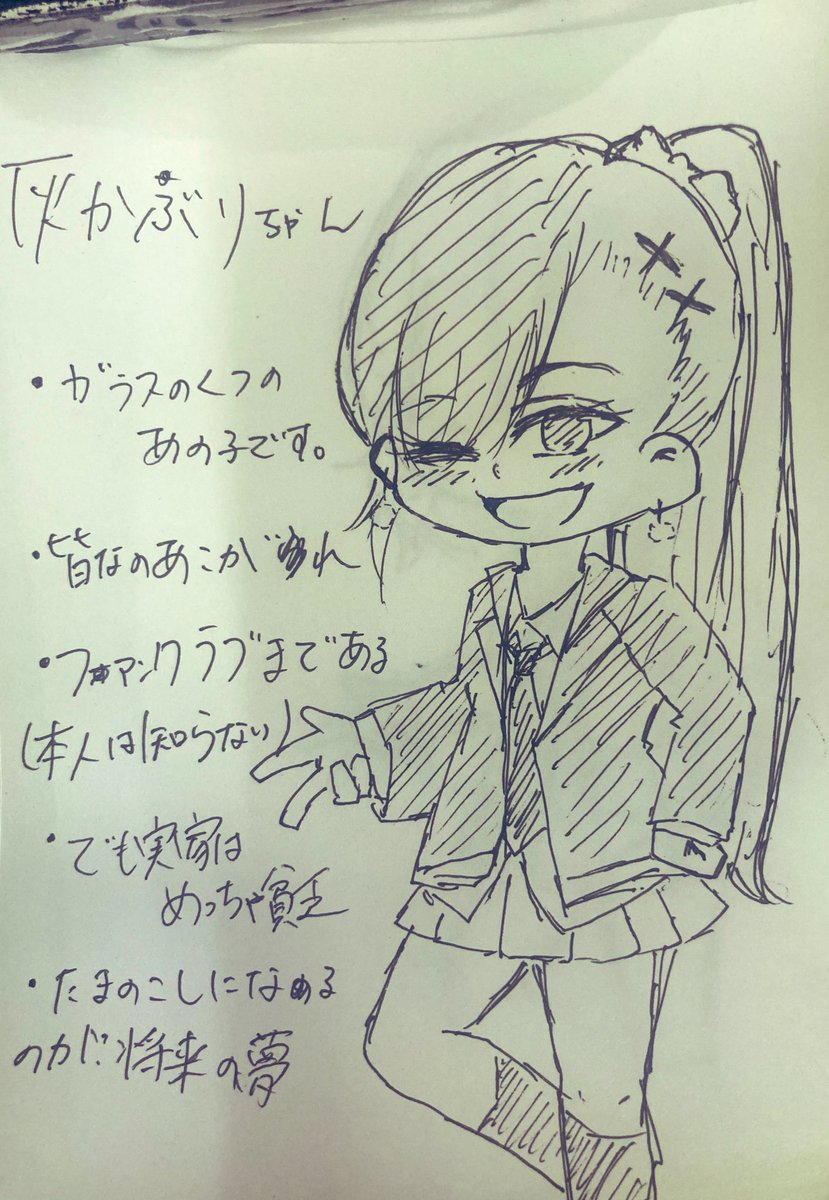 灰かぶりちゃん
・ガラスのくつの
あの子です。
・皆なのあこがれ
・ファンクラブまである
(本人は知らない)
・でも実家は
めっちゃ貧乏
・たまのこしになる
のが将来の夢